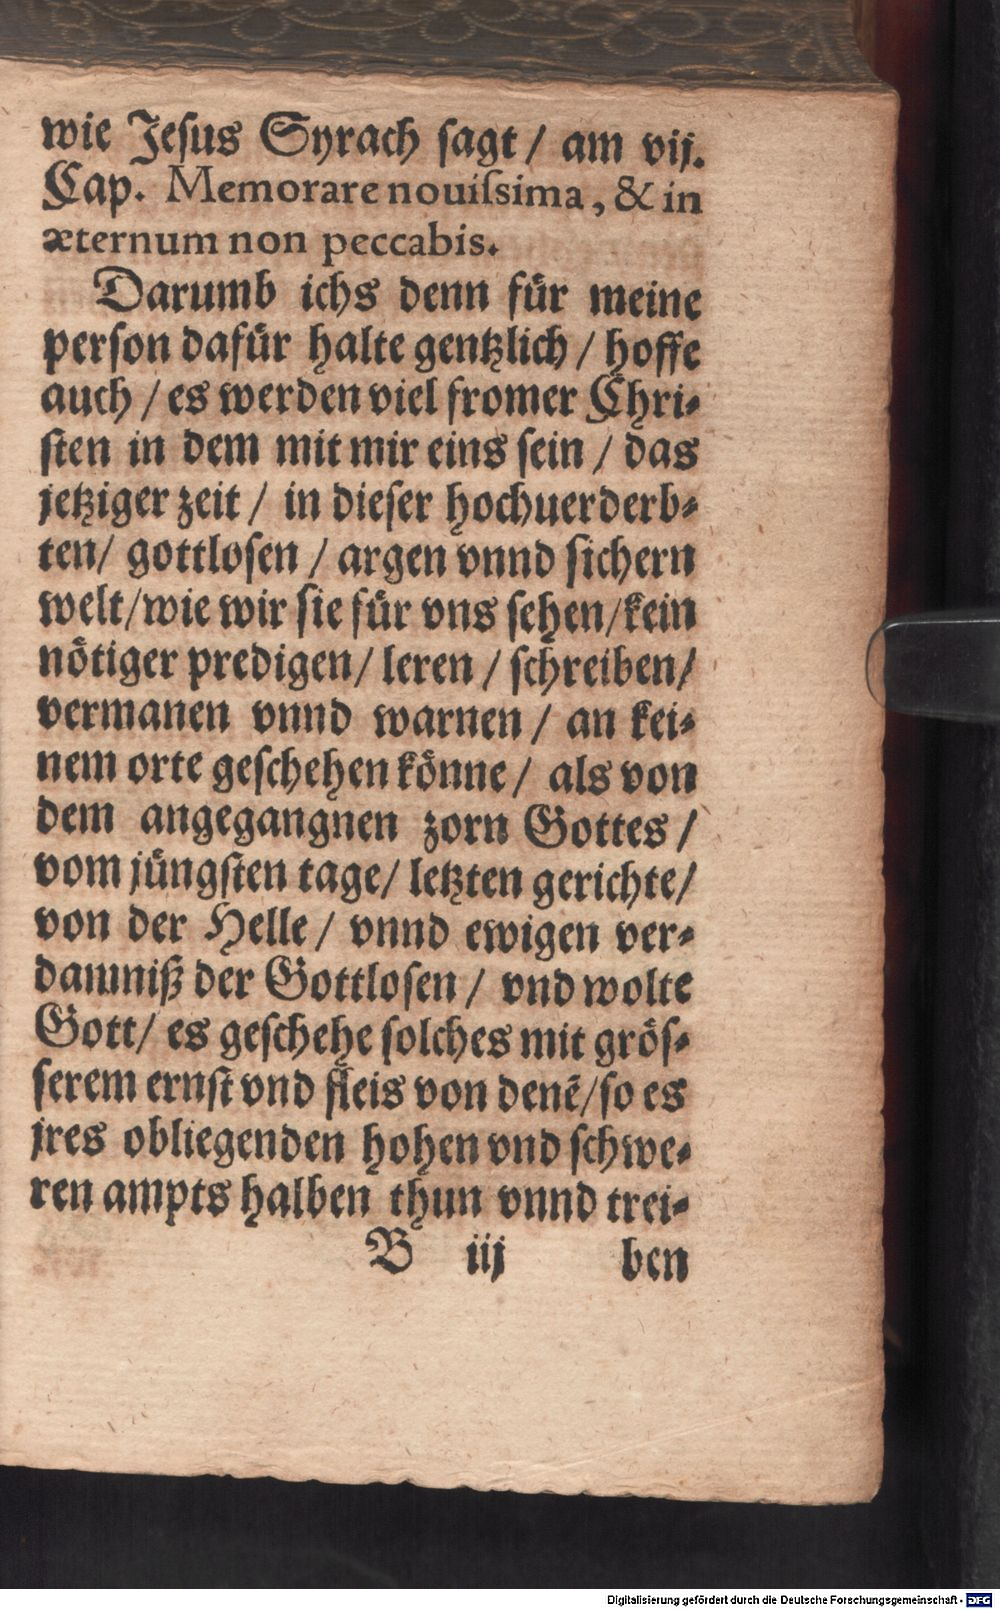 wie Jesus Syrach sagt / am vij.
Cap. Memorare nouiſsima, & in
æternum non peccabis.
Darumb ichs denn für meine
person dafür halte gentzlich / hoffe
auch / es werden viel fromer Chri-
sten in dem mit mir eins sein / das
jetziger zeit / in dieser hochuerderb-
ten / gottlosen / argen vnnd sichern
welt / wie wir sie für vns sehen / kein
nötiger predigen / leren / schreiben /
vermanen vnnd warnen / an kei-
nem orte geschehen könne / als von
dem angegangnen zorn Gottes /
vom jüngsten tage / letzten gerichte /
von der Helle / vnnd ewigen ver-
damniß der Gottlosen / vnd wolte
Gott / es geschehe solches mit grös-
serem ernst vnd fleis von denē / so es
jres obliegenden hohen vnd schwe-
ren ampts halben thun vnnd trei-
B iij ben
Digitalisierung gefördert durch die Deutsche Forschungsgemeinschaft - DFG